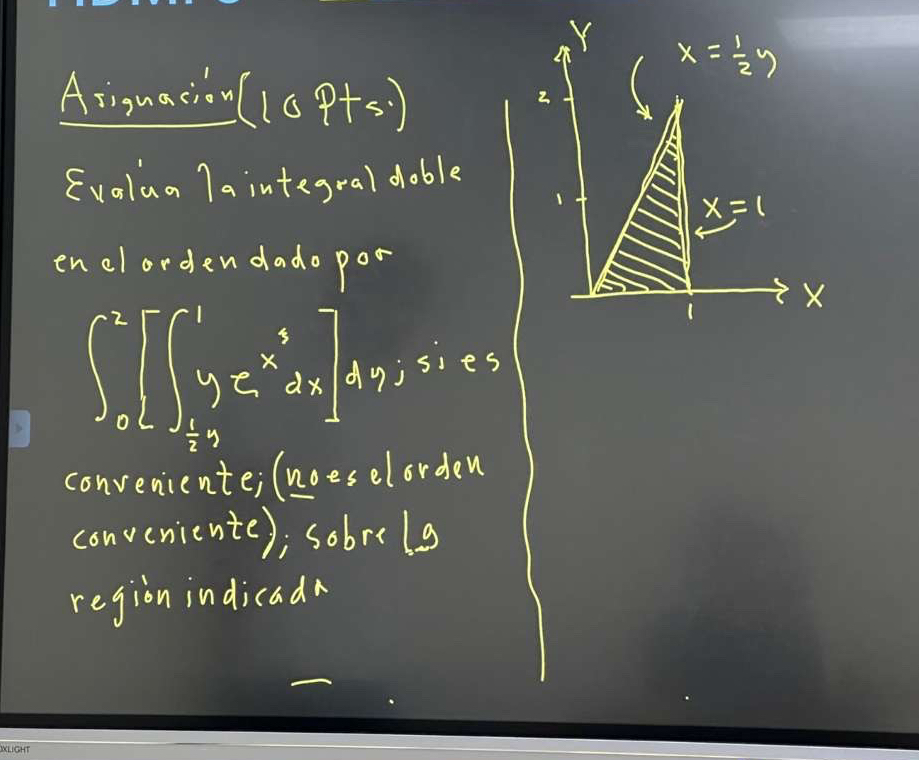 Asignación (10 Pts.)
Evalúa la integral doble
en el orden dado por
∫₀² [∫_{½y}^1 y e^{x³} dx] dy; si es
conveniente; (no es el orden
conveniente); sobre la
región indicada
Y
x = ½ y
2
1
x = 1
X
1
OXLIGHT